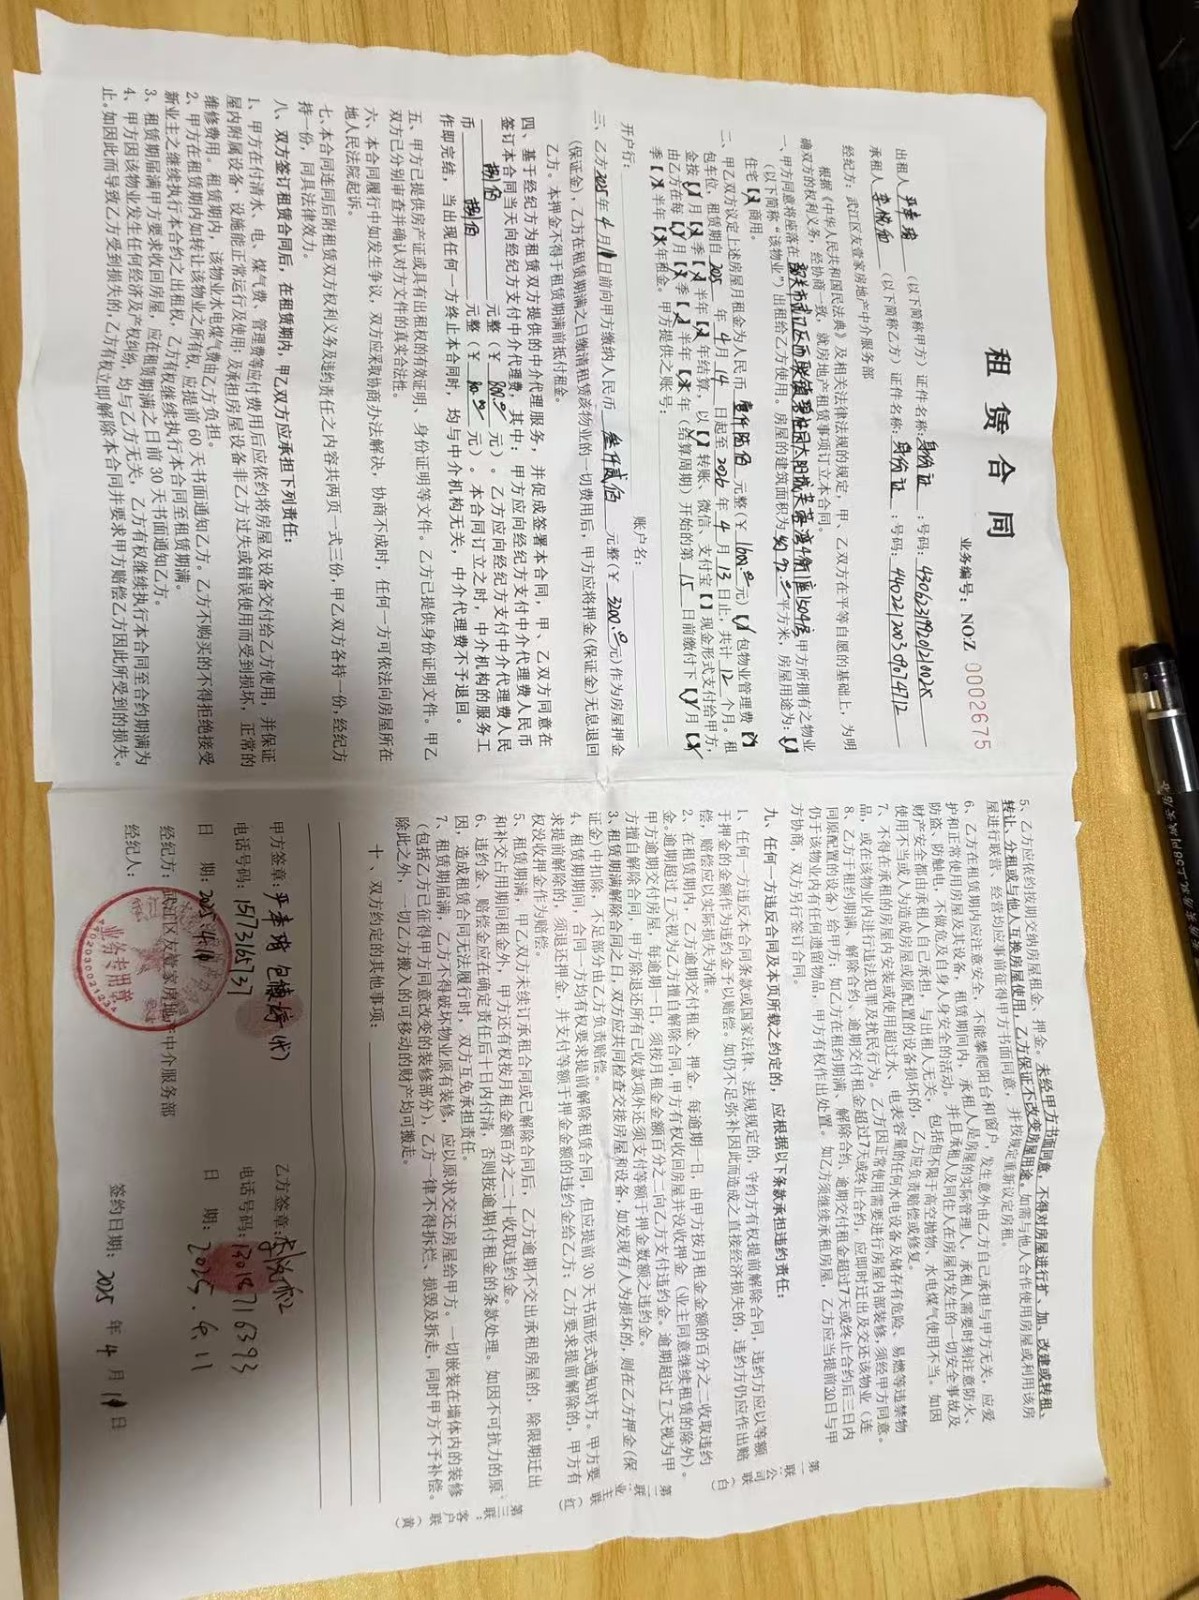 租 赁 合 同
业务编号：NOZ 0002675
出租人 （以下简称甲方）证件名称：身份证 ；号码：
承租人 （以下简称乙方）证件名称：身份证 ；号码：
经纪方：武江区友壹家房地产中介服务部
根据《中华人民共和国民法典》及相关法律法规的规定，甲、乙双方在平等自愿的基础上，为明
确双方的权利义务，经协商一致，就房地产租赁事项订立本合同。
一、甲方同意将座落在 甲方所拥有之物业
（以下简称“该物业”）出租给乙方使用。房屋的建筑面积为 平方米，房屋用途为：【】
住宅【】商用。
二、甲乙双方议定上述房屋月租金为人民币 壹仟陆佰 元整（￥1600.00元）【】包物业管理费【】
包车位，租赁期自 2025 年 4 月 14 日起至 2026 年 4 月 13 日止，共计 12 个月。租
金按【】月【】季【】半年【】年结算，以【】转账、微信、支付宝【】现金形式支付给甲方，
由乙方在每【】月【】季【】半年【】年（结算周期）开始的第 15 日前缴付下【】月【】
季【】半年【】年租金。甲方提供之账号：
开户行： 账户名：
三、乙方2025年4月11日前向甲方缴纳人民币 叁仟贰佰 元整（￥3200.00元）作为房屋押金
（保证金），乙方在租赁期满之日缴清租赁该物业的一切费用后，甲方应将押金（保证金）无息退回
乙方。本押金不得于租赁期满前抵付租金。
四、基于经纪方为租赁双方提供的中介代理服务，并促成签署本合同，甲、乙双方同意在
签订本合同当天向经纪方支付中介代理费，其中：甲方应向经纪方支付中介代理费人民币
捌佰 元整（￥800.00元）。乙方应向经纪方支付中介代理费人民
币 捌佰 元整（￥ 元）。本合同订立之时，中介机构的服务工
作即完结，当出现任何一方终止本合同时，均与中介机构无关，中介代理费不予退回。
五、甲方已提供房产证或具有出租权的有效证明、身份证明等文件。乙方已提供身份证明文件。甲乙
双方已分别审查并确认对方文件的真实合法性。
六、本合同履行中如发生争议，双方应采取协商办法解决，协商不成时，任何一方可依法向房屋所在
地人民法院起诉。
七、本合同连同后附租赁双方权利义务及违约责任之内容共两页一式三份，甲乙双方各持一份，经纪方
持一份，同具法律效力。
八、双方签订租赁合同后，在租赁期内，甲乙双方应承担下列责任：
1、甲方在付清水、电、煤气费、管理费等应付费用后应依约将房屋及设备交付给乙方使用，并保证
屋内附属设备、设施能正常运行及使用；及承担房屋设备非乙方过失或错误使用而受到损坏，正常的
维修费用。租赁期内，该物业水电煤气费由乙方负担。
2、甲方在租赁期内如转让该物业之所有权，应提前 60 天书面通知乙方。乙方不购买的不得拒绝接受
新业主之继续执行本合约之出租权，乙方有权继续执行本合同至租赁期满。
3、租赁期届满甲方要求收回房屋，应在租赁期满之日前 30 天书面通知乙方。
4、甲方因该物业发生任何经济及产权纠纷，均与乙方无关，乙方有权继续执行本合同至合约期满为
止。如因此而导致乙方受到损失的，乙方有权立即解除本合同并要求甲方赔偿乙方因此所受到的损失。
5、乙方应依约按期交纳房屋租金、押金。未经甲方书面同意，不得对房屋进行扩、加、改建或转租、
转让、分租或与他人互换房屋使用，乙方保证不改变房屋用途，如需与他人合作使用房屋或利用该房
屋进行联营、经营均应事前征得甲方书面同意，并按规定重新议定房租。
6、乙方在租赁期内应注意安全，不能攀爬阳台和窗户，发生意外由乙方自己承担与甲方无关，应爱
护和正常使用房屋及其设备，租赁期间内，承租人是房屋的实际管理人，承租人需要时刻注意防火、
防盗、防触电，不做危及自身人身安全的活动。并且承租人及同住人在房屋内发生的一切安全事故及
财产安全都由承租人自己承担，与出租人无关，包括但不限于高空抛物、水电煤气使用不当。如因
使用不当或人为造成房屋或原配置的设备损坏的，乙方应负责赔偿或修复。
7、不得在承租的房屋内安装或使用超过水、电表容量的任何水电设备及储存有危险、易燃等违禁物
品，或在该物业内进行违法犯罪及扰民行为。乙方因正常使用需要进行房屋内部装修，须经甲方同意。
8、乙方于租约期满，解除合约、逾期交付租金超过7天或终止合约，应即时迁出及交还该物业（连
同原配置的设备）给甲方；如乙方在租约期满、解除合约，逾期交付租金超过7天或终止合约后三日内
仍于该物业内有任何遗留物品，甲方有权作出处置。如乙方须继续承租房屋，乙方应当提前30日与甲
方协商，双方另行签订合同。
九、任何一方违反合同及本页所载之约定的，应根据以下条款承担违约责任：
1、任何一方违反本合同条款或国家法律、法规规定的，守约方有权提前解除合同，违约方应以等额
于押金的金额作为违约金予以赔偿。如仍不足弥补因此而造成之直接经济损失的，违约方仍应作出赔
偿，赔偿应以实际损失为准。
2、在租赁期内，乙方逾期交付租金、押金，每逾期一日，由甲方按月租金金额的百分之二收取违约
金。逾期超过7天视为乙方擅自解除合同，甲方有权收回房屋并没收押金（业主同意继续租赁的除外）。
甲方逾期交付房屋，每逾期一日，须按月租金金额百分之二向乙方支付违约金。逾期超过7天视为甲
方擅自解除合同，甲方除退还所有已收款项外还须支付等额于押金数额之违约金。
3、租赁期满解除合同之日，双方应共同检查交接房屋和设备，如发现有人为损坏的，则在乙方押金（保
证金）中扣除，不足部分由乙方负责赔偿。
4、租赁期期间，合同一方均有权要求提前解除租赁合同，但应提前30天书面形式通知对方。甲方要
求提前解除的，须退还押金，并支付等额于押金金额的违约金给乙方；乙方要求提前解除的，甲方有
权没收押金作为赔偿。
5、租赁期满，甲乙双方未续订承租合同或已解除合同后，乙方逾期不交出承租房屋的，除限期迁出
和补交占用期间租金外，甲方还有权按月租金额百分之二十收取违约金。
6、违约金、赔偿金应在确定责任后十日内付清，否则按逾期付租金的条款处理。如因不可抗力的原
因，造成租赁合同无法履行时，双方互免承担责任。
7、租赁期届满，乙方不得破坏物业原有装修，应以原状交还房屋给甲方。一切嵌装在墙体内的装修
（包括乙方已征得甲方同意改变的装修部分），乙方一律不得拆烂、损毁及拆走，同时甲方不予补偿。
除此之外，一切乙方搬入的可移动的财产均可搬走。
十、双方约定的其他事项：
甲方签章： （代） 乙方签章：
电话号码：15773165737 电话号码：13018716393
日 期：2025.4.11 日 期：2025.4.11
经纪方：武江区友壹家房地产中介服务部
经纪人： 签约日期：2025 年 4 月 11 日
业务专用章
第一联：公司联（白）
第二联：业主联（红）
第三联：客户联（黄）